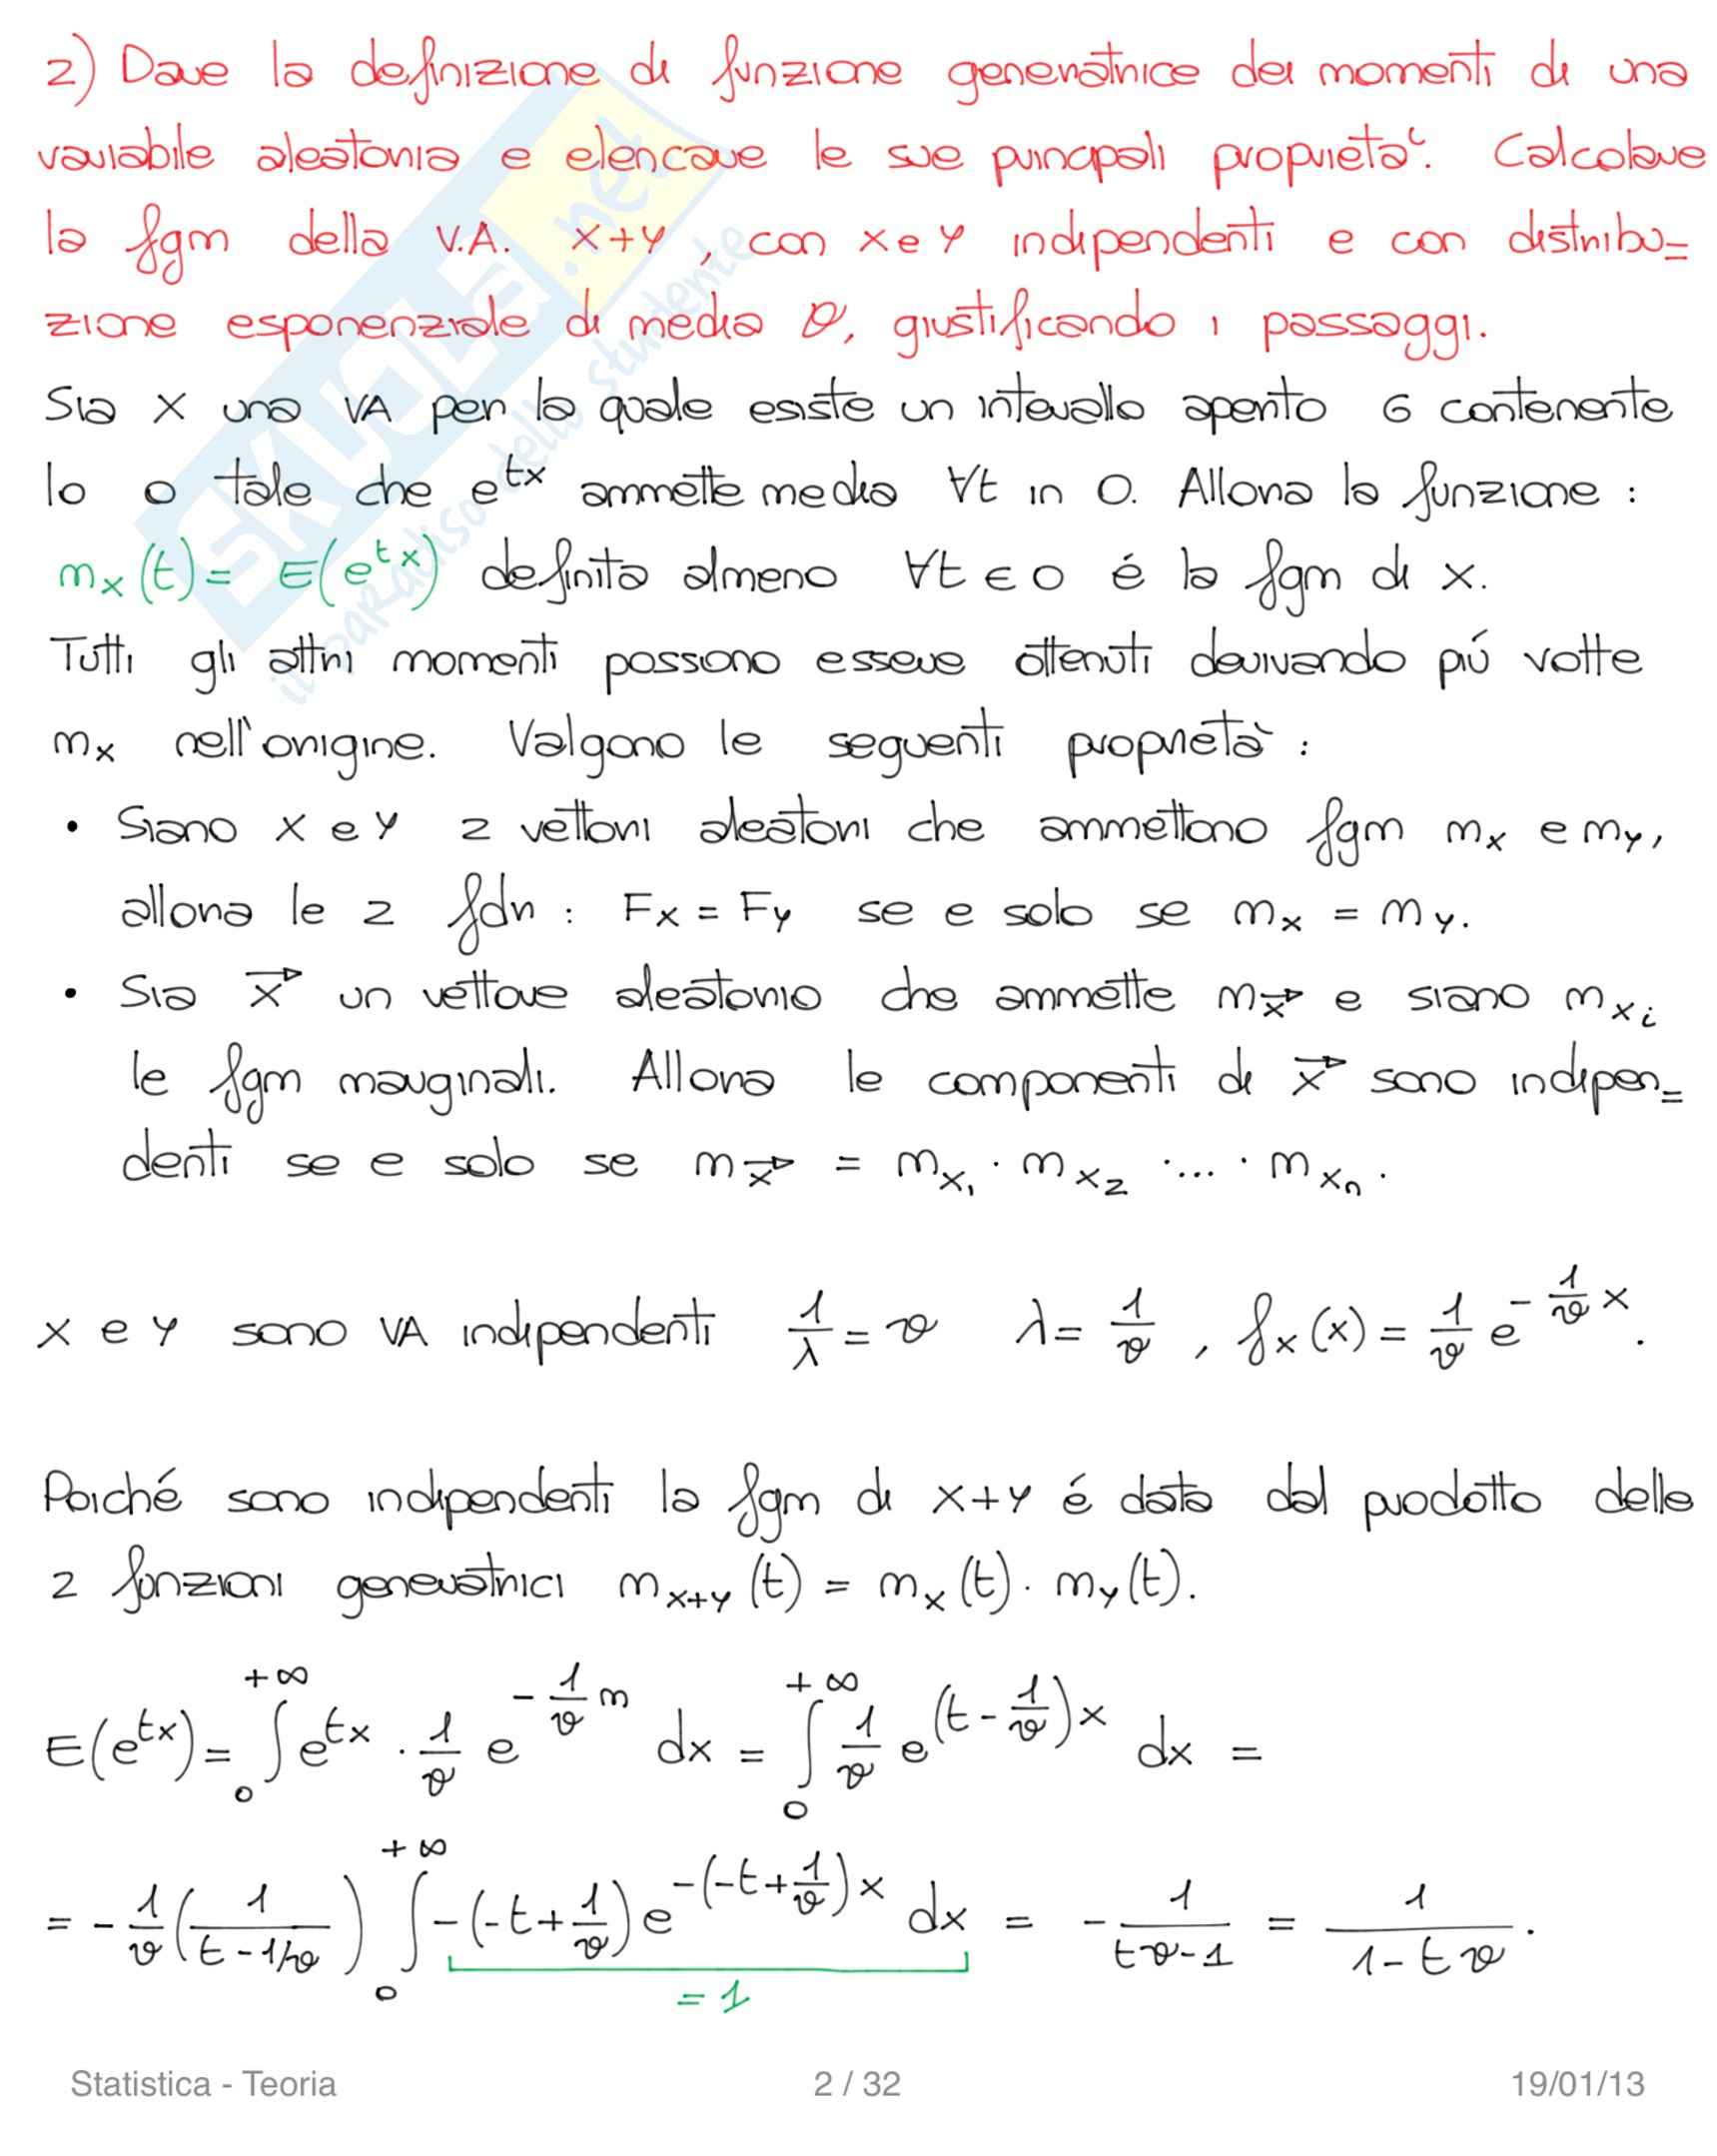 2) Dare la definizione di funzione generatrice dei momenti di una
variabile aleatoria e elencare le sue principali proprietà. Calcolare
la fgm della V.A. X+Y, con X e Y indipendenti e con distribu=
zione esponenziale di media θ, giustificando i passaggi.
Sia X una VA per la quale esiste un intevallo aperto G contenente
lo 0 tale che e^{tx} ammette media ∀t in O. Allora la funzione:
m_X(t) = E(e^{tx}) definita almeno ∀t ∈ O é la fgm di X.
Tutti gli altri momenti possono essere ottenuti derivando piú volte
m_X nell'origine. Valgono le seguenti proprietà:
• Siano X e Y 2 vettori aleatori che ammettono fgm m_X e m_Y,
allora le 2 fdr: F_X = F_Y se e solo se m_X = m_Y.
• Sia X⃗ un vettore aleatorio che ammette m_X⃗ e siano m_{X_i}
le fgm marginali. Allora le componenti di X⃗ sono indipen=
denti se e solo se m_X⃗ = m_{X_1} · m_{X_2} · ... · m_{X_n}.
X e Y sono VA indipendenti 1/λ = ϑ λ = 1/ϑ, f_X(x) = 1/ϑ e^{-1/ϑ x}.
Poiché sono indipendenti la fgm di X+Y é data dal prodotto delle
2 funzioni generatrici m_{X+Y}(t) = m_X(t) · m_Y(t).
E(e^{tx}) = ∫_0^{+∞} e^{tx} · 1/ϑ e^{-1/ϑ m} dx = ∫_0^{+∞} 1/ϑ e^{(t-1/ϑ)x} dx =
= -1/ϑ (1/(t-1/ϑ)) ∫_0^{+∞} -(-t+1/ϑ) e^{-(-t+1/ϑ)x} dx = -1/(tϑ-1) = 1/(1-tϑ).
= 1
Statistica - Teoria 2 / 32 19/01/13
SKUOLA.net
il paradiso dello studente